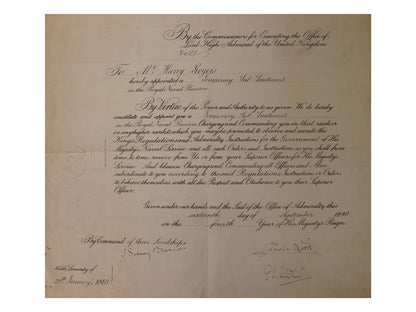 By the Commissioners for Executing the Office of
Lord High Admiral of the United Kingdom
To Mr. Harry Rogers
hereby appointed a Temporary Sub Lieutenant
in the Royal Naval Reserve
By Virtue of the Power and Authority to us given We do hereby
constitute and appoint you a Temporary Sub Lieutenant
in the Royal Naval Reserve Charging and Commanding you in that rank or
in any higher rank to which you may be promoted to observe and execute the
King's Regulations and Admiralty Instructions for the Government of His
Majesty's Naval Service and all such Orders and Instructions as you shall from
time to time receive from Us or from your Superior Officers for His Majesty's
Service. And likewise Charging and Commanding all Officers and Men
subordinate to you according to the said Regulations Instructions or Orders
to behave themselves with all due Respect and Obedience to you their Superior
Officer.
Given under our hands and the Seal of the Office of Admiralty this
sixteenth day of September 1940
in the fourth Year of His Majesty's Reign.
By Command of their Lordships
With Seniority of
January, 1940